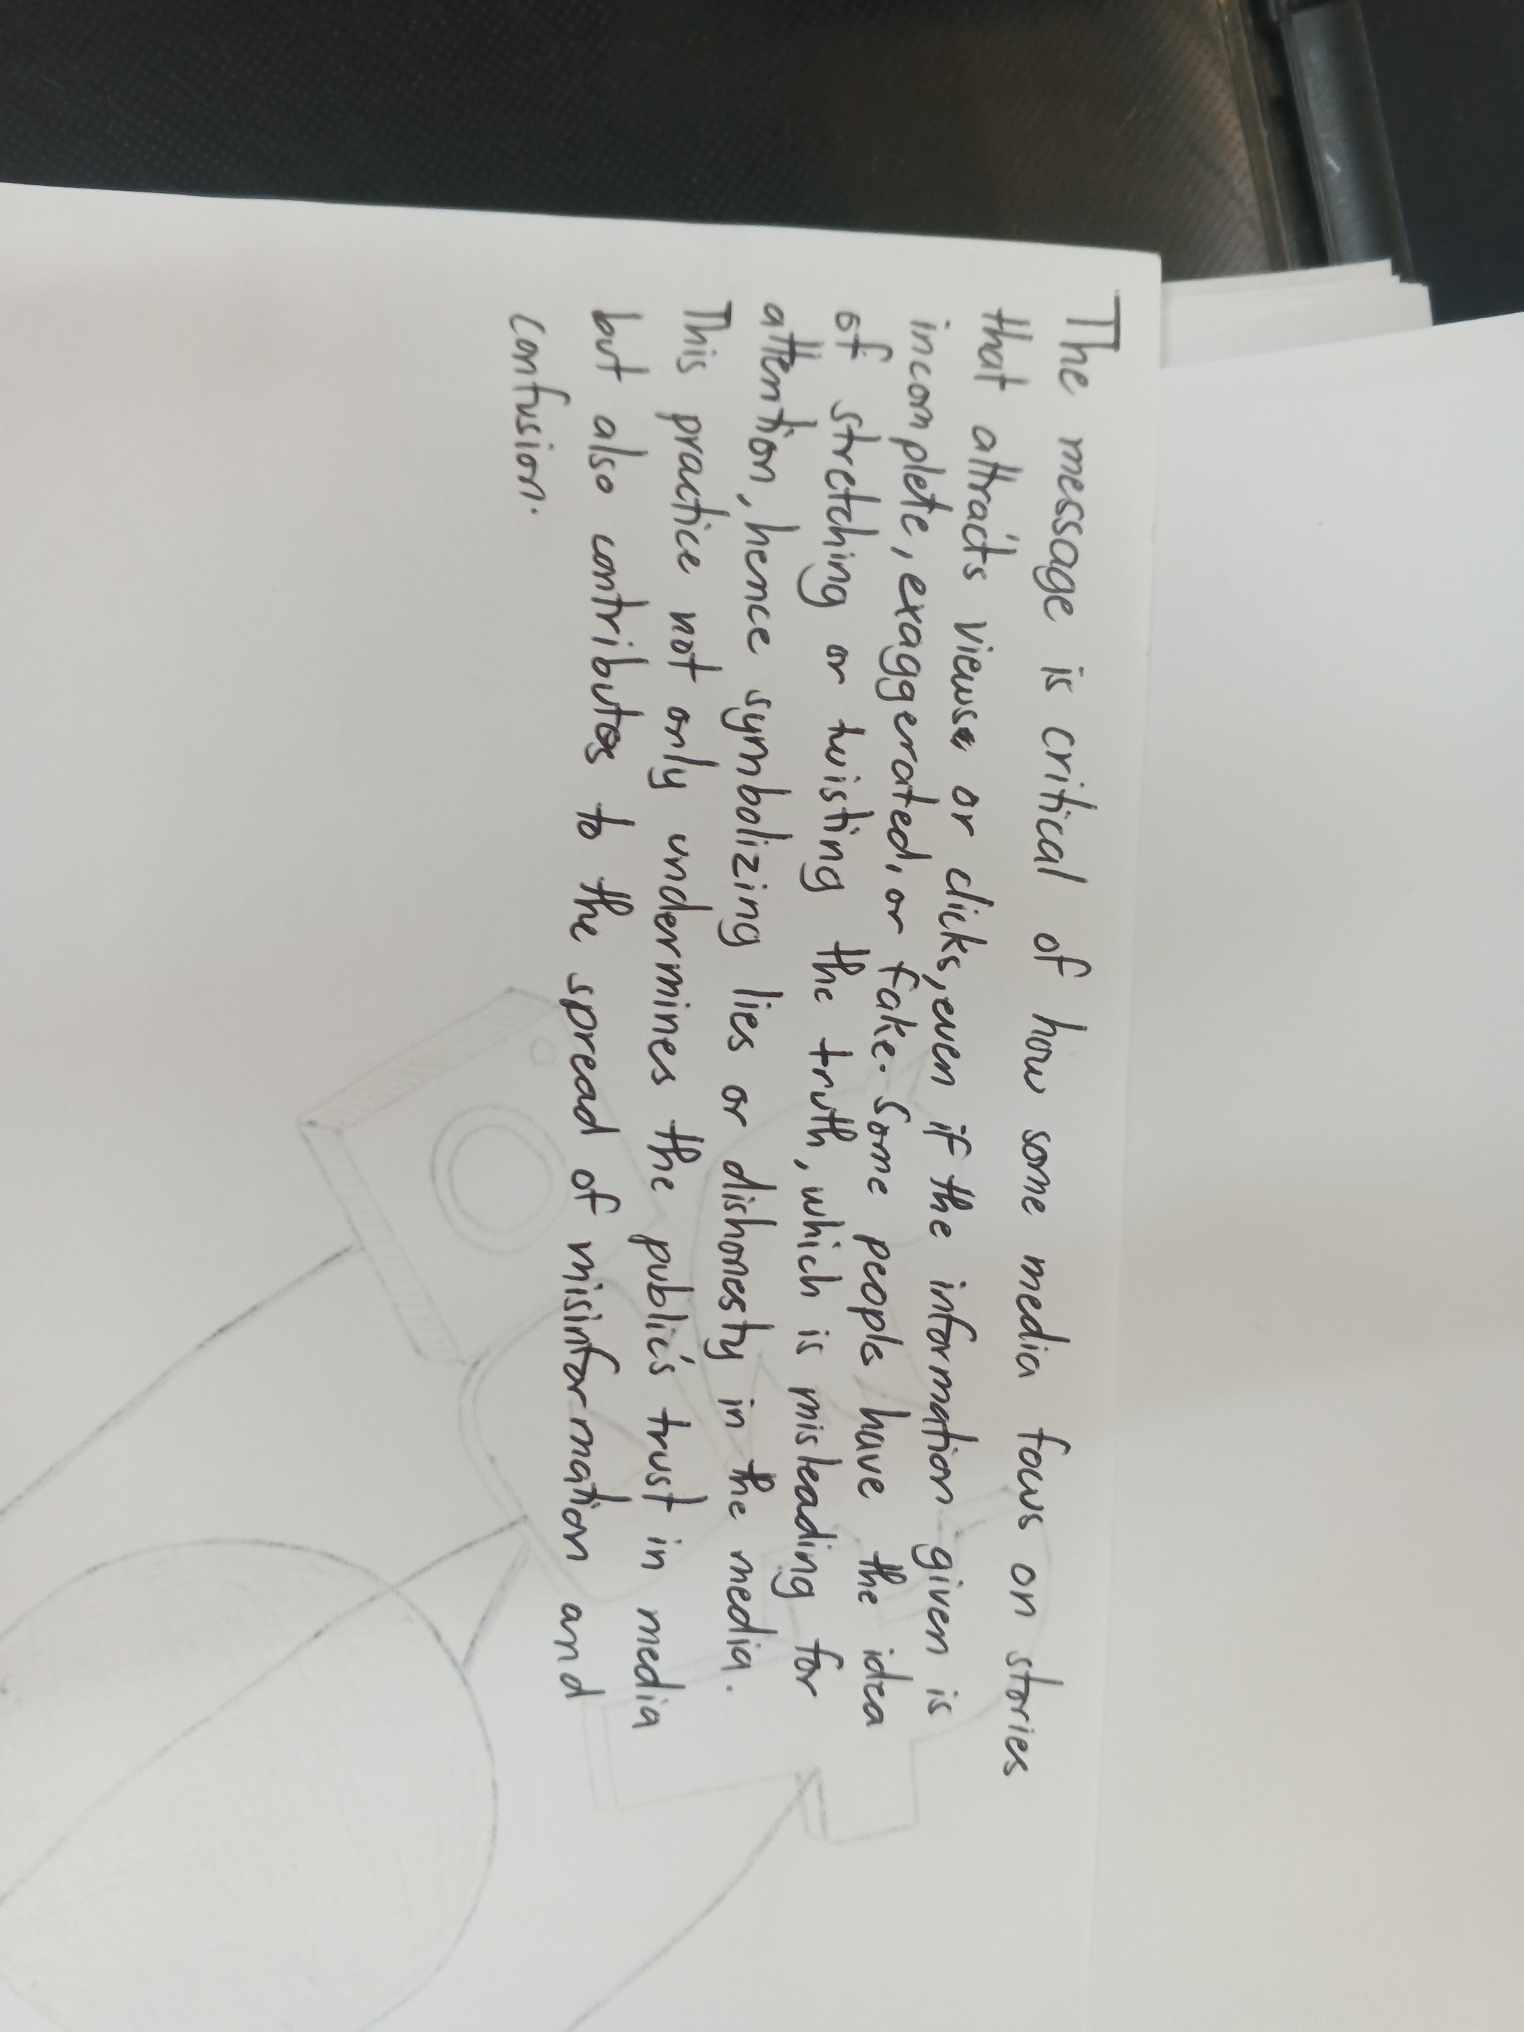 The message is critical of how some media focus on stories
that attracts views or clicks, even if the information given is
incomplete, exaggerated, or fake. Some people have the idea
of stretching or twisting the truth, which is misleading for
attention, hence symbolizing lies or dishonesty in the media.
This practice not only undermines the public's trust in media
but also contributes to the spread of misinformation and
confusion.